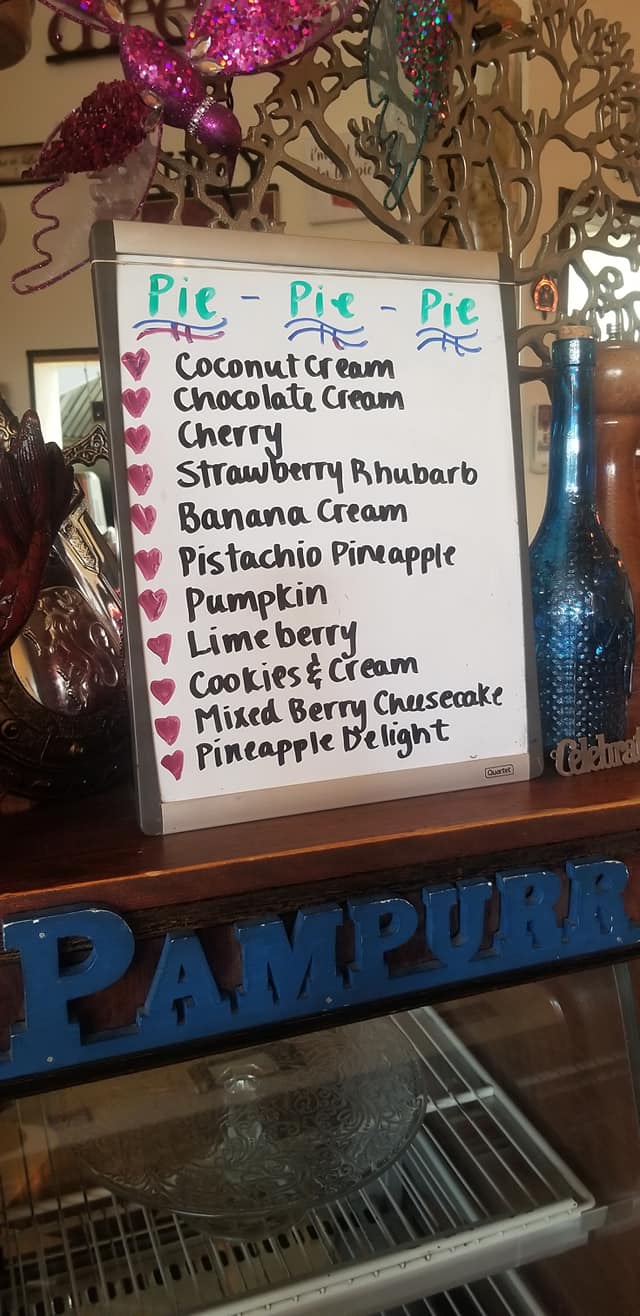 Pie - Pie - Pie
Coconut Cream
Chocolate Cream
Cherry
Strawberry Rhubarb
Banana Cream
Pistachio Pineapple
Pumpkin
Lime berry
Cookies & Cream
Mixed Berry Cheesecake
Pineapple Delight
Quartet
Celebrat
PAMPURR